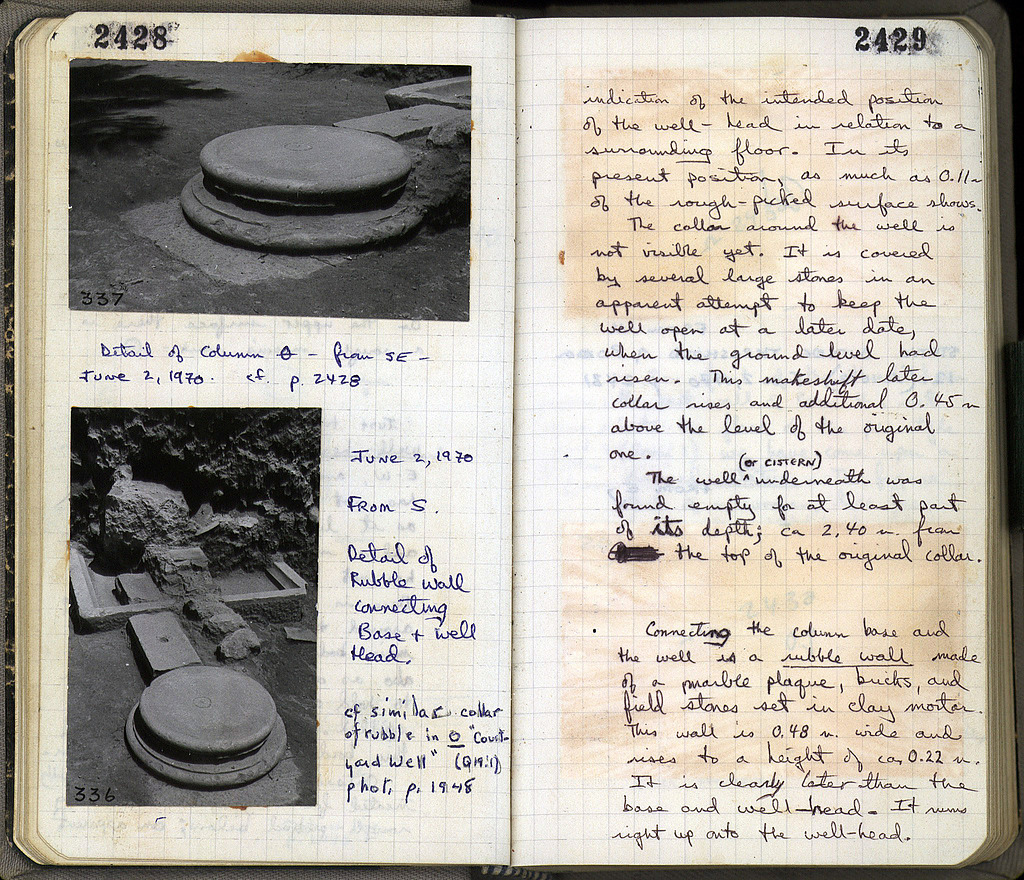 2428
337
Detail of Column θ - from SE -
June 2, 1970. cf. p. 2428
June 2, 1970
From S.
Detail of
Rubble wall
connecting
Base + well
Head.
cf similar collar
of rubble in O "Court-
yard Well" (Q19:1)
phot. p. 1948
336
2429
indication of the intended position
of the well-head in relation to a
surrounding floor. In its
present position, as much as 0.11 m
of the rough-picked surface shows.
The collar around the well is
not visible yet. It is covered
by several large stones in an
apparent attempt to keep the
well open at a later date,
when the ground level had
risen. This makeshift later
collar rises and additional 0.45 m
above the level of the original
one.
(or CISTERN)
The well ^ underneath was
found empty for at least part
of its depth; ca 2.40 m from
the top of the original collar.
Connecting the column base and
the well is a rubble wall made
of a marble plaque, bricks, and
field stones set in clay mortar.
This wall is 0.48 m. wide and
rises to a height of ca 0.22 m.
It is clearly later than the
base and well-head. It runs
right up onto the well-head.